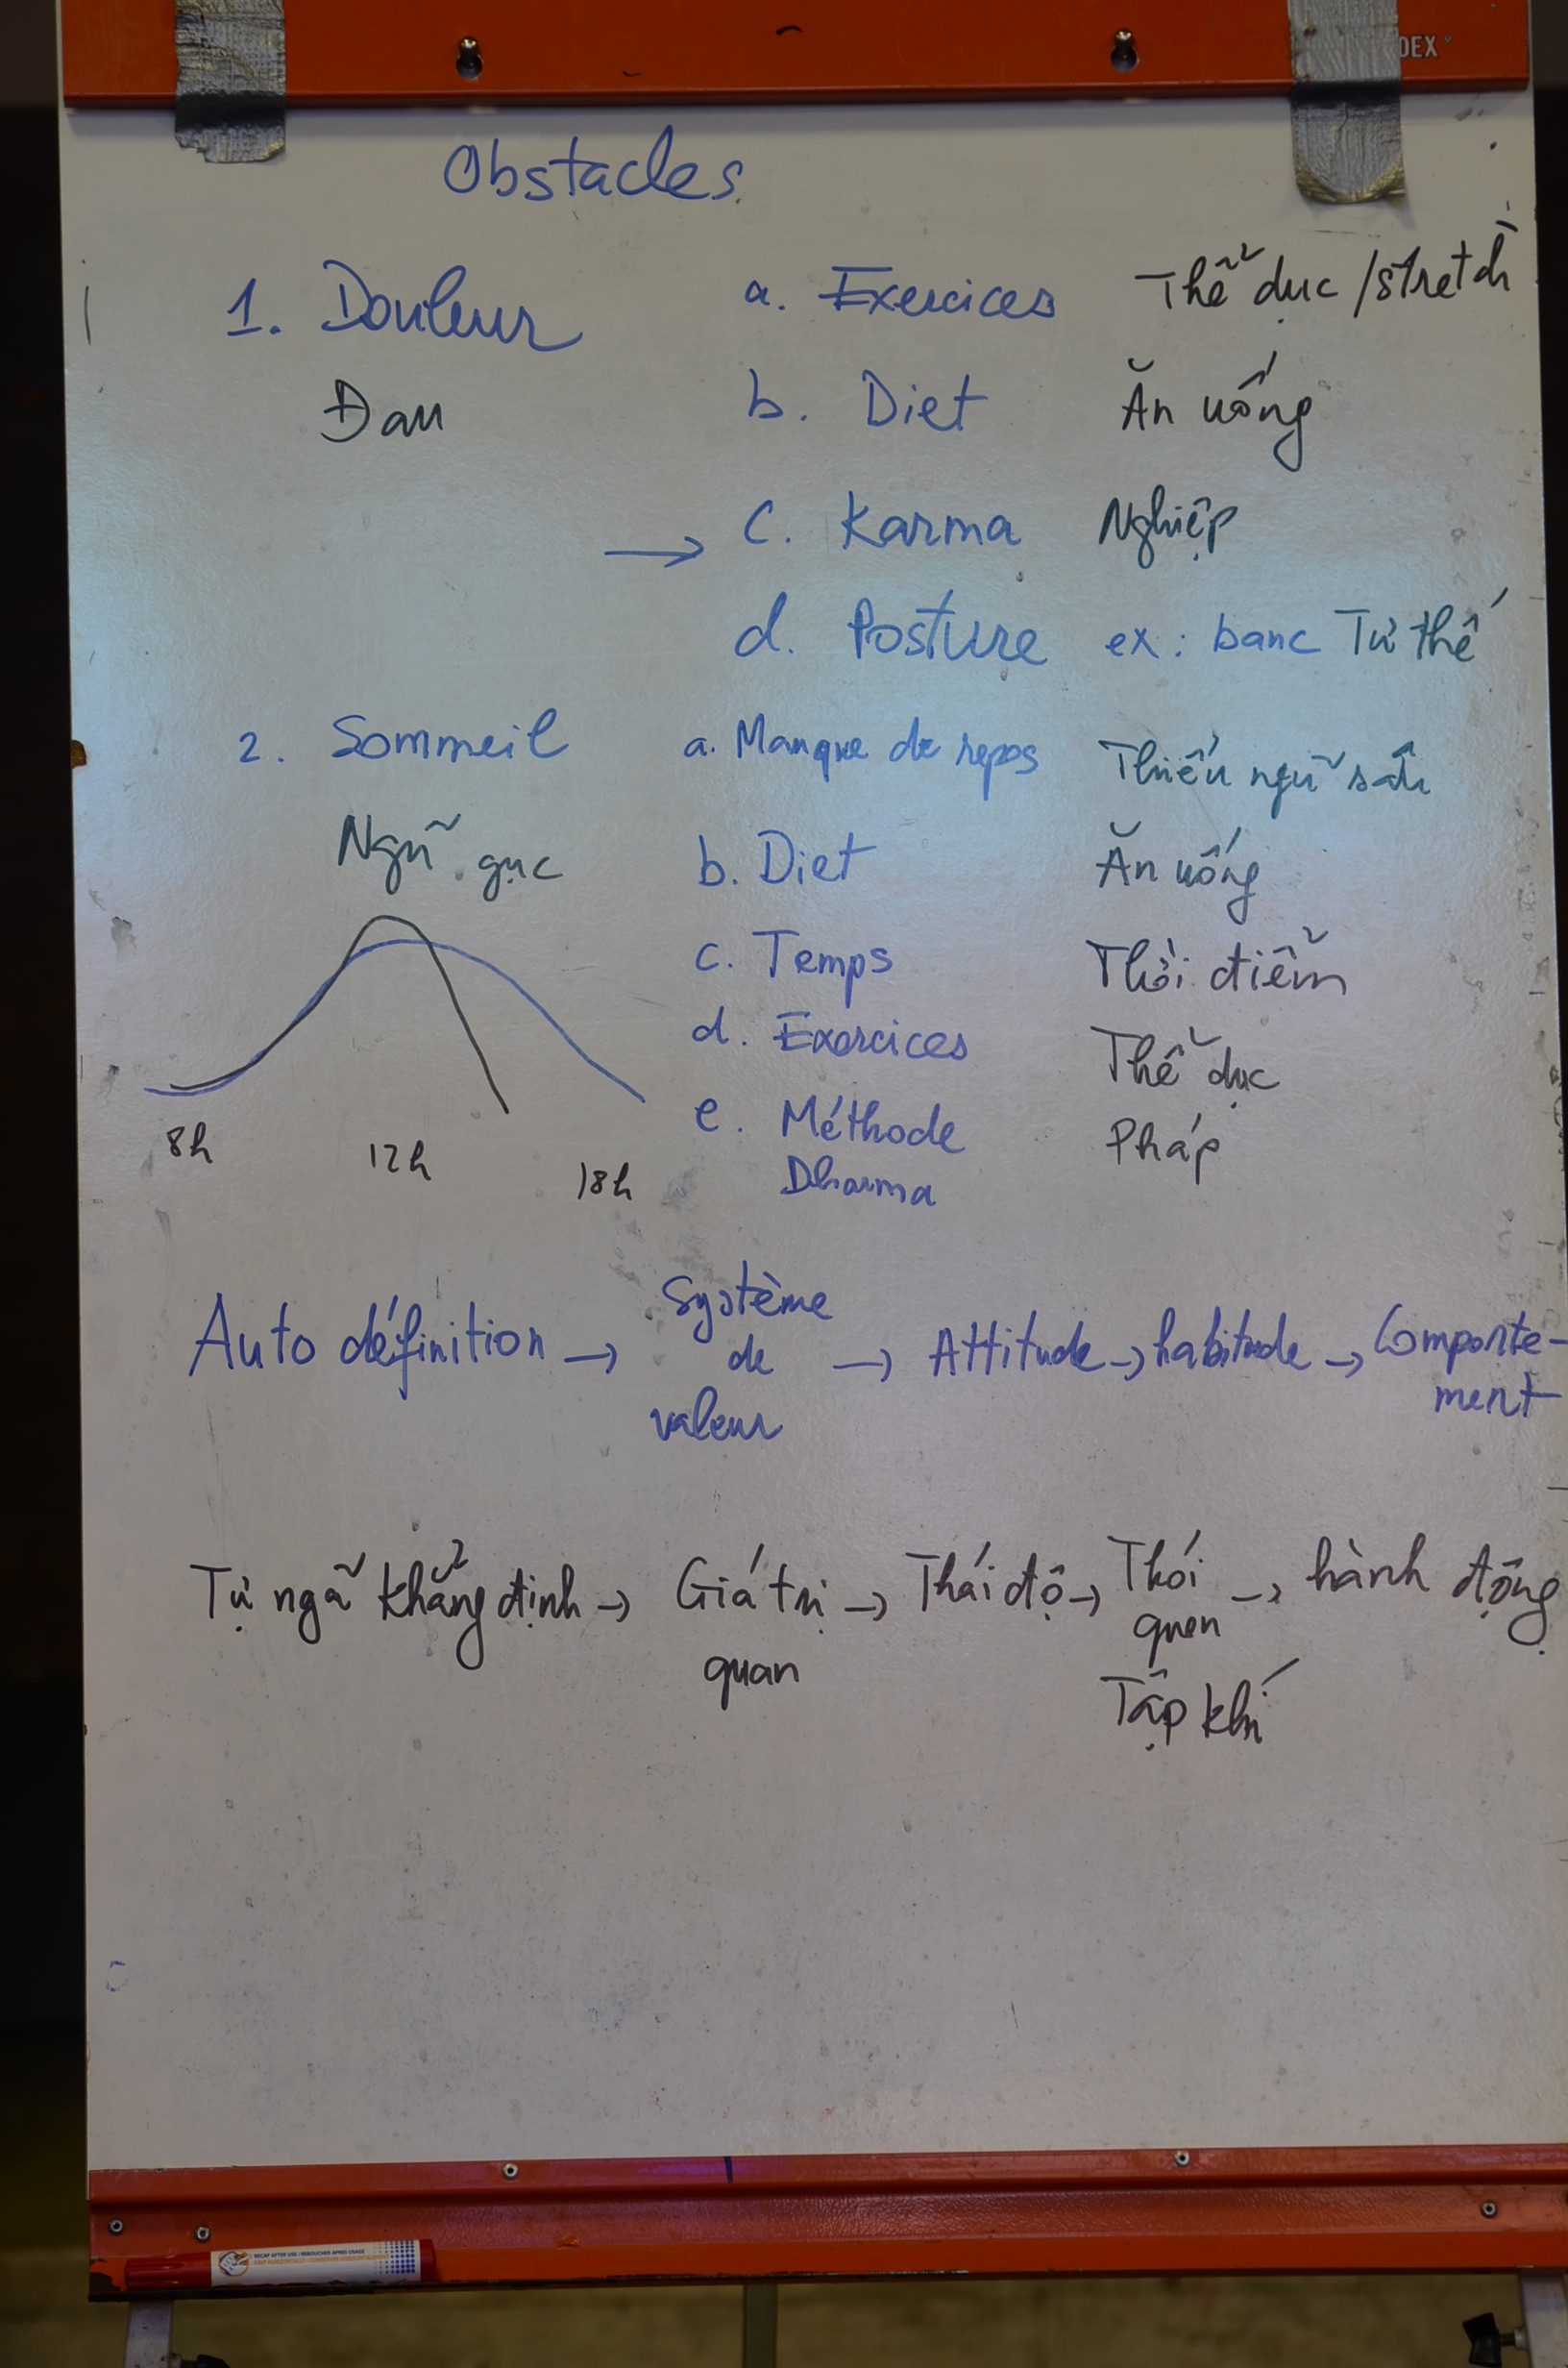 DEX
Obstacles
1. Douleur a. Exercices Thể dục / stretch
Đau b. Diet Ăn uống
→ c. Karma Nghiệp
d. Posture ex: banc Tư thế
2. Sommeil a. Manque de repos Thiếu ngủ sâu
Ngủ gục b. Diet Ăn uống
c. Temps Thời điểm
d. Exercices Thể dục
e. Méthode Pháp
Dharma
8h 12h 18h
Auto définition → Système de valeur → Attitude → habitude → Comporte-
ment
Tự ngã khẳng định → Giá trị → Thái độ → Thói → hành động
quan quen
Tập khí
RECAP AFTER USE / REBOUCHER APRES USAGE
KEEP HORIZONTALLY / CONSERVER HORIZONTALEMENT